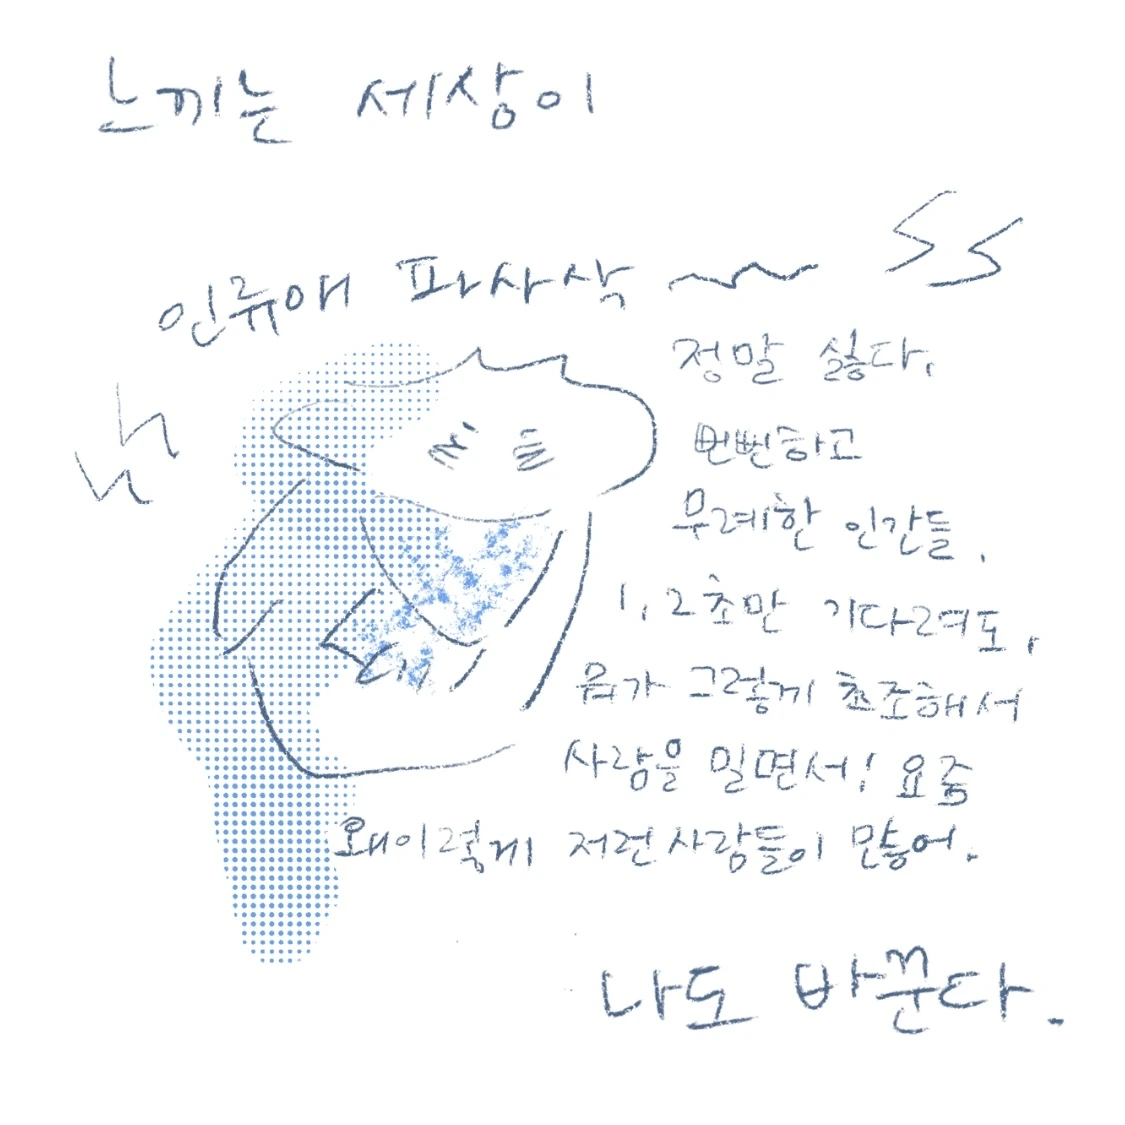 느끼는 세상이
인류애 파사삭
정말 싫다.
뻔뻔하고
무례한 인간들.
1, 2초만 기다려도,
뭐가 그렇게 초조해서
사람을 밀면서! 요즘
왜이렇게 저런사람들이 많어.
나도 바꾼다.